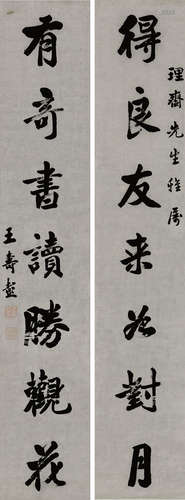 得良友来如對月
理齋先生雅属
有奇書讀勝觀花
王壽彭